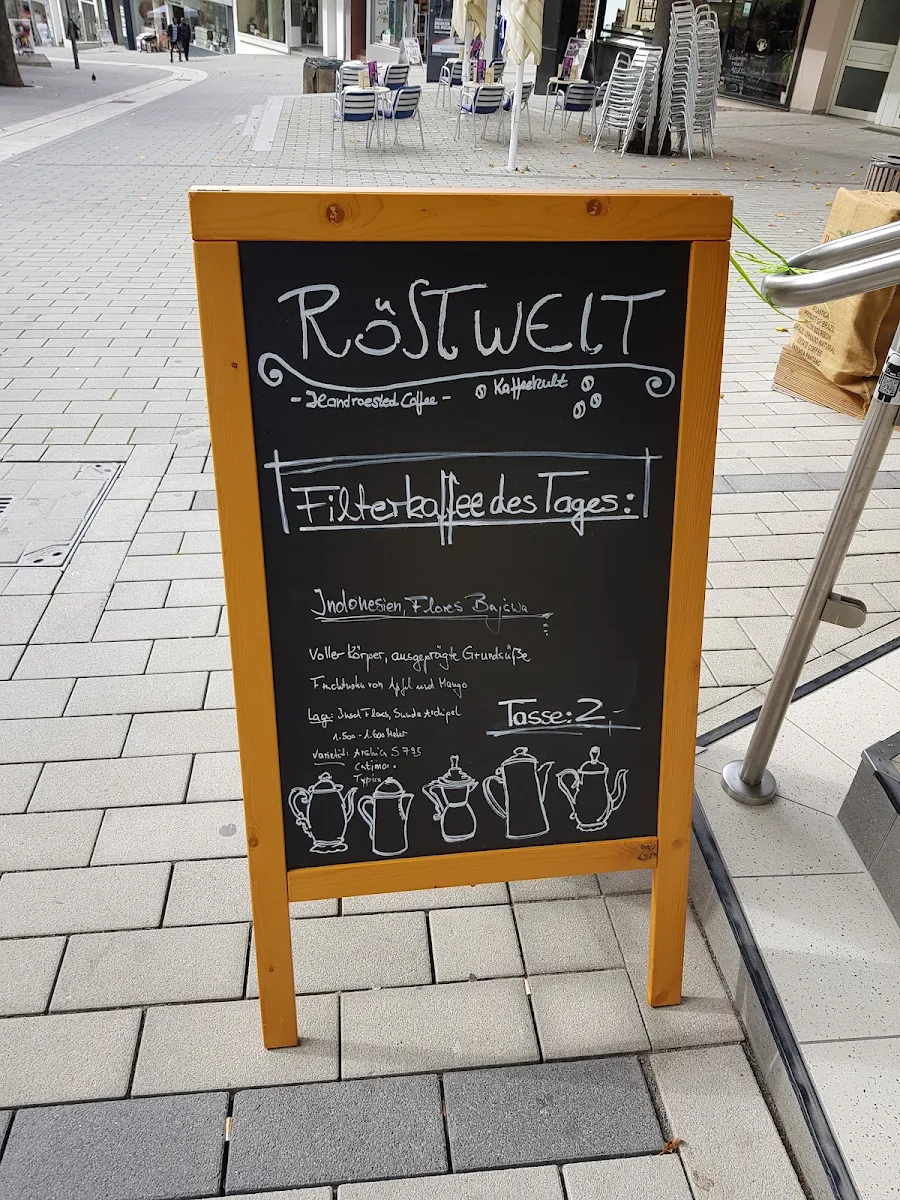 RÖSTWELT
- Handroested Coffee -
Kaffeekult
Filterkaffee des Tages:
Indonesien, Flores Bajawa
Voller Körper, ausgeprägte Grundsüße
von Apfel und Mango
Lage: Insel Flores, Sunda Archipel
1.500 - 1.600 Meter
Varietät: Arabica S 795
Catimor
Typica
Tasse: 2,-